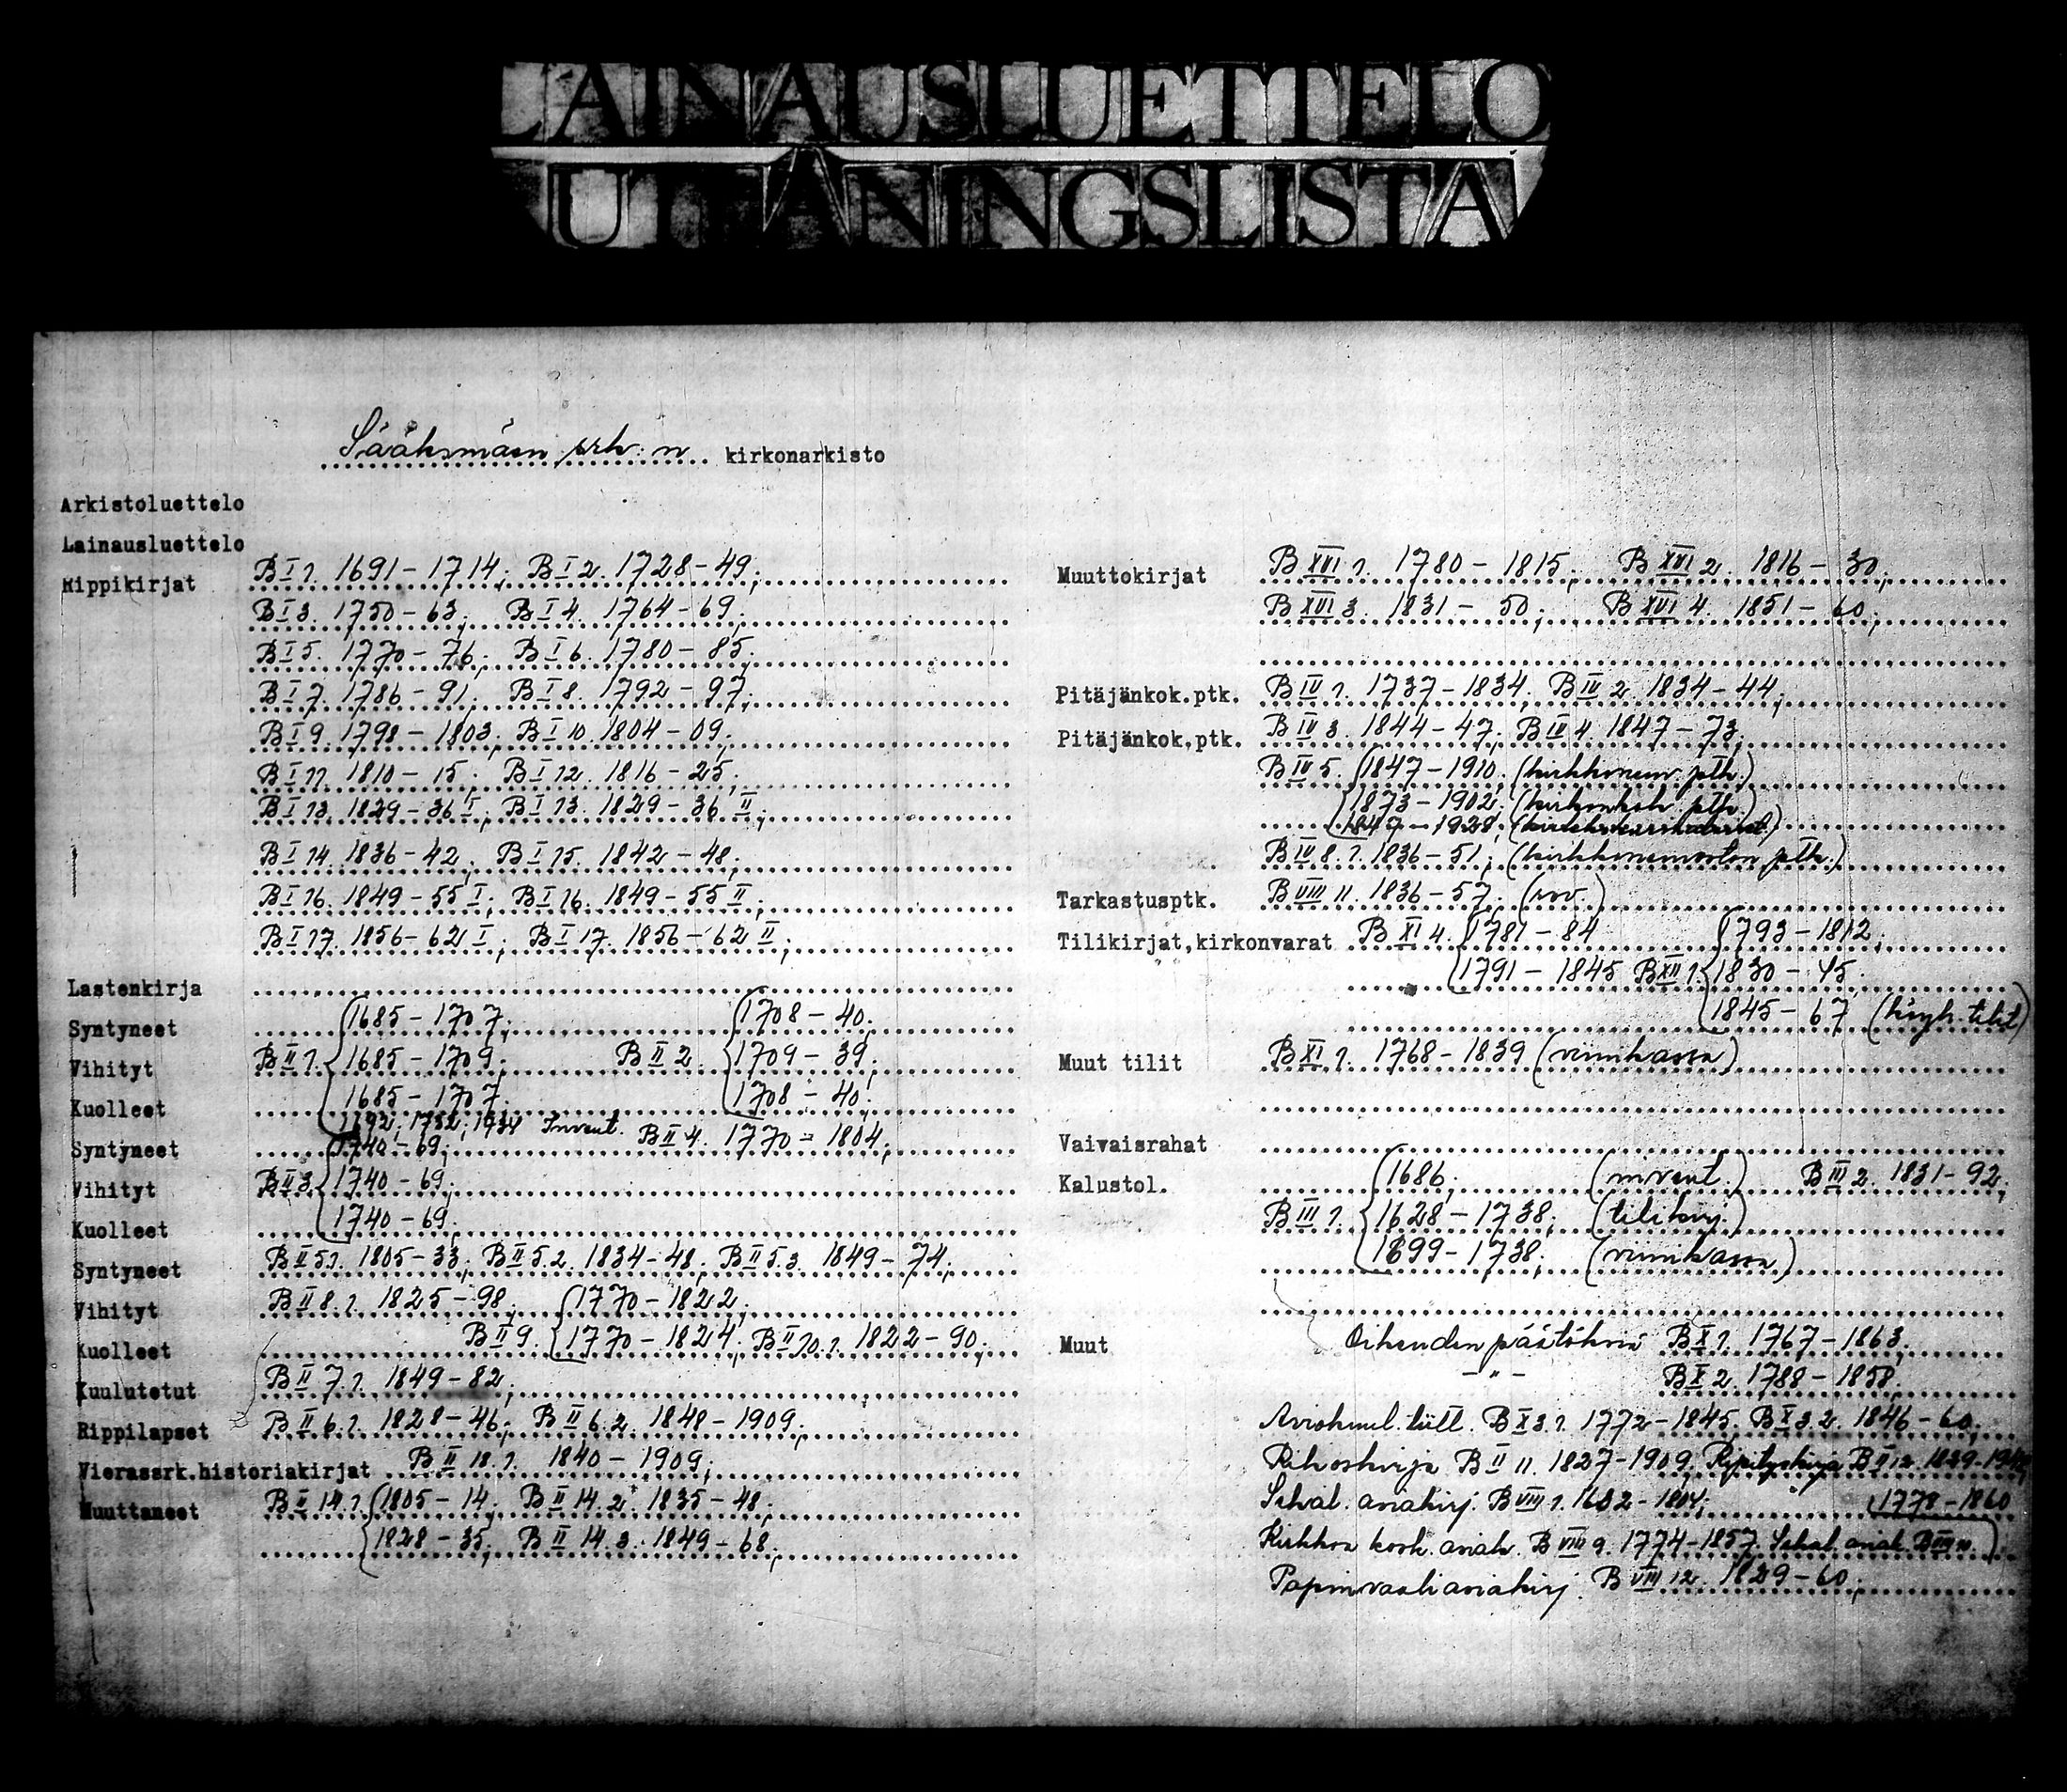 LAINAUSLUETTELO
UTLÅNINGSLISTA
Sääksmäen srk:n kirkonarkisto
Arkistoluettelo
Lainausluettelo
Rippikirjat B I 1. 1691-1714; B I 2. 1728-49;
B I 3. 1750-63; B I 4. 1764-69;
B I 5. 1770-76; B I 6. 1780-85;
B I 7. 1786-91; B I 8. 1792-97;
B I 9. 1798-1803; B I 10. 1804-09;
B I 11. 1810-15; B I 12. 1816-25;
B I 13. 1829-36 I; B I 13. 1829-36 II;
B I 14. 1836-42; B I 15. 1842-48;
B I 16. 1849-55 I; B I 16. 1849-55 II;
B I 17. 1856-62 I; B I 17. 1856-62 II;
Lastenkirja
Syntyneet 1685-1707; 1708-40;
Vihityt B II 1. 1685-1709; B II 2. 1709-39;
Kuolleet 1685-1707; 1708-40;
1692; 1732; 1734 Invent.
Syntyneet 1740-69; B II 4. 1770-1804;
Vihityt B II 3. 1740-69;
Kuolleet 1740-69;
Syntyneet B II 5.1. 1805-33; B II 5.2. 1834-48; B II 5.3. 1849-74;
Vihityt B II 8.1. 1825-98; 1770-1822;
Kuolleet B II 9. 1770-1824; B II 10.1. 1822-90;
Kuulutetut B II 7.1. 1849-82;
Rippilapset B II 6.1. 1828-46; B II 6.2. 1848-1909;
Vierassrk.historiakirjat B II 18.1. 1840-1909;
Muuttaneet B II 14.1. 1805-14; B II 14.2. 1835-48;
1828-35; B II 14.3. 1849-68;
Muuttokirjat B XVI 1. 1780-1815; B XVI 2. 1816-30;
B XVI 3. 1831-50; B XVI 4. 1851-60;
Pitäjänkok.ptk. B IV 1. 1737-1834; B IV 2. 1834-44;
Pitäjänkok.ptk. B IV 3. 1844-47; B IV 4. 1847-73;
B IV 5. 1847-1910; (kirkkoneuv. ptk.)
1873-1902; (kirkonkok. ptk.)
1847-1928;
B IV 8.1. 1836-51; (kirkkoneuvoston ptk.)
Tarkastusptk. B VIII 11. 1836-57; (rov.)
Tilikirjat,kirkonvarat B XI 4. 1781-84 1793-1812;
1791-1845 B XII 1. 1830-45;
1845-67 (köyh. tilit)
Muut tilit B XI 1. 1768-1839 (viinikassa)
Vaivaisrahat
Kalustol. 1686; (invent.) B III 2. 1831-92;
B III 1. 1628-1738; (tilikirj.)
1699-1738; (viinikassa)
Muut Oikeuden päätöksiä B X 1. 1767-1863;
-"- B X 2. 1788-1858;
Aviokuul. luett. B X 3.1. 1772-1845; B X 3.2. 1846-60;
Rikoskirja B II 11. 1827-1909; Ripityskirja B II 12.
Sekal. asiakirj. B VIII 1. 1682-1804; 1778-1860
Kirkkoa kosk. asiak. B VIII 9. 1774-1857; Sekal. asiak.
Papinvaaliasiakirj. B VIII 12. 1829-60;